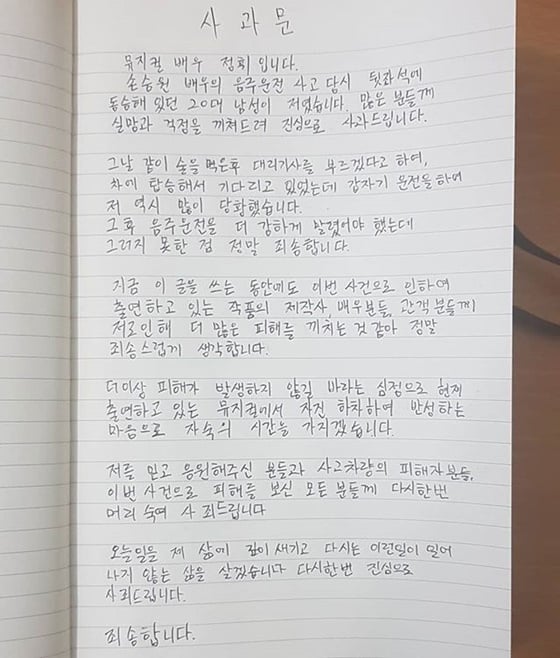 사 과 문
뮤지컬 배우 정휘입니다.
손승원 배우의 음주운전 사고 당시 뒷좌석에
동승해 있던 20대 남성이 저였습니다. 많은 분들께
실망과 걱정을 끼쳐드려 진심으로 사과드립니다.
그날 같이 술을 먹은후 대리기사를 부르겠다고 하여,
차에 탑승해서 기다리고 있었는데 갑자기 운전을 하여
저 역시 많이 당황했습니다.
그 후 음주운전을 더 강하게 말렸어야 했는데
그러지 못한 점 정말 죄송합니다.
지금 이 글을 쓰는 동안에도 이번 사건으로 인하여
출연하고 있는 작품의 제작사, 배우분들, 관객분들께
저로인해 더 많은 피해를 끼치는 것 같아 정말
죄송스럽게 생각합니다.
더이상 피해가 발생하지 않길 바라는 심정으로 현재
출연하고 있는 뮤지컬에서 자진 하차하여 반성하는
마음으로 자숙의 시간을 가지겠습니다.
저를 믿고 응원해주신 분들과 사고차량의 피해자분들,
이번 사건으로 피해를 보신 모든 분들께 다시한번
머리 숙여 사죄드립니다
오늘일을 제 삶에 깊이 새기고 다시는 이런일이 일어
나지 않는 삶을 살겠습니다 다시한번 진심으로
사죄드립니다.
죄송합니다.